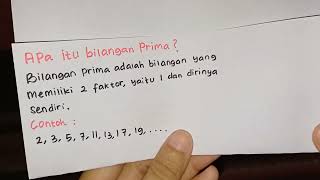 APa itu bilangan Prima?
Bilangan Prima adalah bilangan yang
Memiliki 2 faktor, yaitu 1 dan dirinya
Sendiri.
Contoh :
2, 3, 5, 7, 11, 13, 17, 19, ....